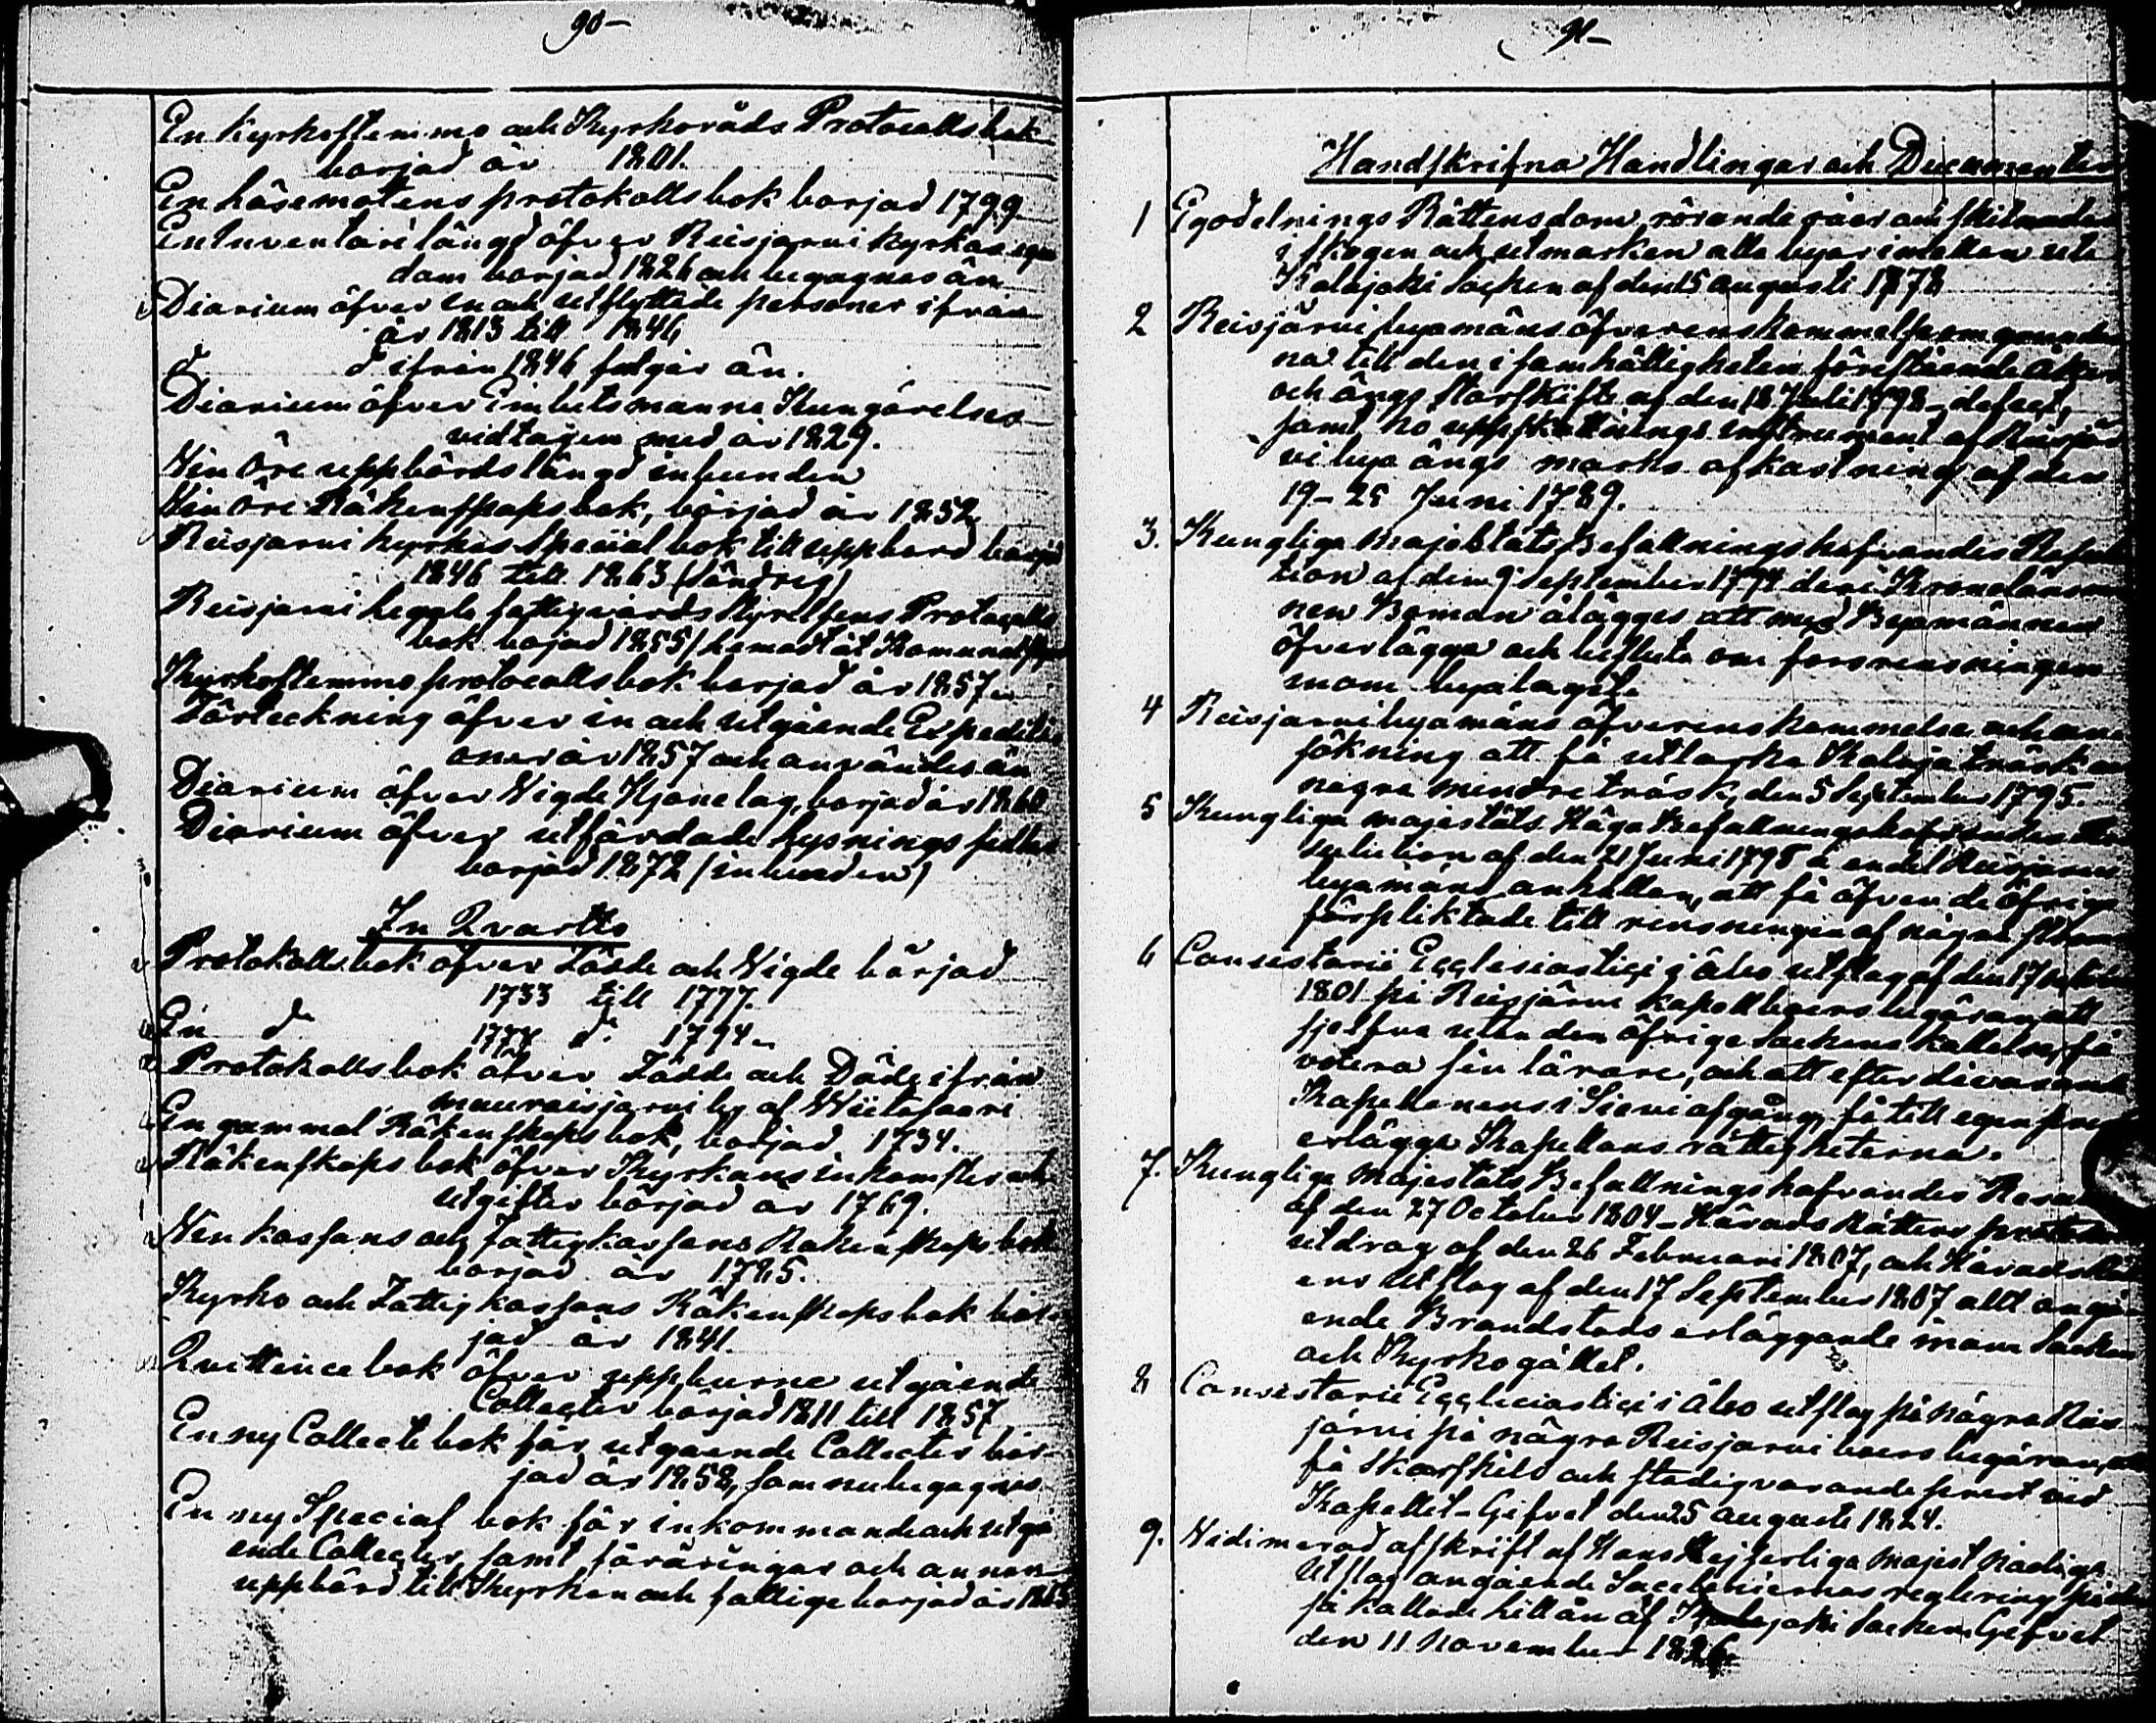 90-
En Kyrkostemmo och Kyrkoråds Protocolls bok
borjad år 1801.
En häsemotens protokolls bok borjad 1799
En Inventarii längd öfver Reisjarvi kyrkas egen
dom borjad 1826 och begagnas än
Diarium öfver in och utflyttade personer ifrån
år 1813 till 1846
d ifrån 1846 følger än.
Diarium öfver Embetsmanna Kungörelser
vidtagen med år 1829.
Vin Öre uppbördslängd inbunden
Vin Öre Räkenskapsbok, börjad år 1852
Reisjarvi kyrkas Special bok till uppbord börjad
1846 till 1863 (Söndrig)
Reisjarvi kapels fattigvårds styrelsens Protocolls
bok borjad 1855
Kyrkostemmo protocolls bok borjad år 1857
Förteckning öfver in och utgående Expediti
oner år 1857 och användes än
Diarium öfver Vigde Hjonelag, borjad år 1860
Diarium öfver utfärdade lysnings sedlar
borjad 1872 (inbunden)
In Qvartto
Protokolls bok öfver Födde och Vigde börjad
1733 till 1777.
En d:o 1777 d:o 1794
Protokolls bok öfver Födde och Döde ifrån
En gammal Räkenskaps bok, borjad 1734.
Räkenskaps bok öfver Kyrkans inkomster och
utgifter börjad år 1769.
Vin kassans och Fattigkassans Räkenskaps bok
börjad år 1785.
Kyrko och Fattigkassans Räkenskaps bok bör
jad år 1841.
Quittence bok öfver uppburne utgående
Collecter börjad 1811 till 1857
En ny Collecte bok för utgående Collecter bör
jad år 1858, som nu begagnas
En ny Special bok för inkommande och utgå
ende Collecter, samt föräringar och annan
uppbörd till Kyrkan och fattige borjad år 1863
91-
Handskrifna Handlingar och Documenter
1 Egodelnings Rättens dom rörande råer och skilnader
i skogen och utmarken alla byar imellan uti
Kalajoki Socken af den 15 augusti 1778
2 Reisjärvi byamäns öfverenskommelse om grunder
na till den i samhälligheten förestående Åker
och ängs storskifte af den 18 Juli 1798 defect,
samt No uppskattnings instrument af Reisjär
vi bya ängs marks afkastning af den
19-25 Juni 1789.
3. Kungliga Majestäts Befallningshafvandes Resolu
tion af den 9 September 1794 deri Kronolänsman
nen Boman ålägges att med Byamännen
öfverlägga och besluta om forsrensningen
inom byalaget.
4 Reisjarvi byamäns öfverenskommelse och an
sökning att få uttorka Kalaja träsk och
några mindre träsk, den 5 September 1795.
5 Kungliga majestäts Höga Befallningshafvandes Re
solution af den 21 Juni 1798 å endel Reisjarvi
byamäns anhållan, att få äfven de öfriga
förpliktade till rensningen af några strömmar
6 Consistorii Ecclesiastici i Åbo utslag af den 17
1801 på Reisjärvi kapellboers begäran, att
sjelfva utan den öfriga Sockens kallelse, få
votera sin lärare, och att efter dåvarande
Kapellanens i Sievi afgång, få till egen prest
erlägga Kapellans rättigheterna.
7. Kungliga Majestäts Befallningshafvandes Resolution
af den 27 October 1804 - Härads Rättens protokolls
utdrag af den 26 Februari 1807, och Häradsrätt
ens utslag af den 17 September 1807 allt angå
ende Brandstods erläggande inom Socken
och Kyrkogället.
8 Consistorii Eccleciastici i Åbo utslag på några Reis
järvi på några Reisjarvi boers begäran, att
få Skarskild och stadigvarande prest vid
Kapellet - Gifvet den 25 augusti 1824.
9. Vidimerad afskrift af Hans Kejserliga Majest Nådiga
Utslag angående Sacellaniernas reglering på den
så kallade hållån af Kalajoki Socken Gifvet
den 11 November 1826.